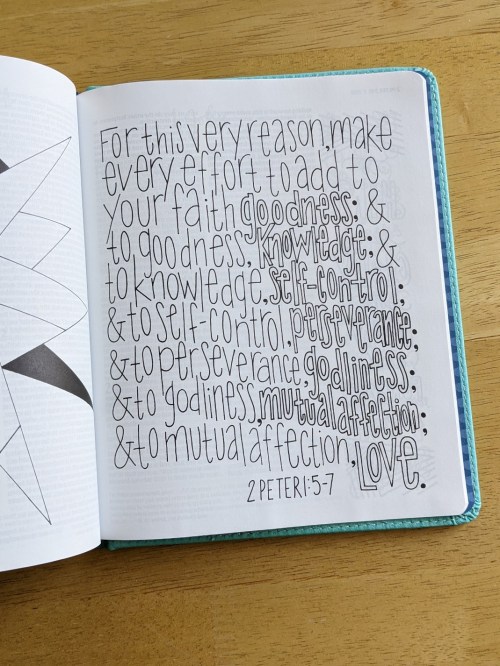 For this very reason, make
every effort to add to
your faith goodness; &
to goodness, knowledge; &
to knowledge, self-control;
& to self-control, perseverance;
& to perseverance, godliness;
& to godliness, mutual affection;
& to mutual affection, LOVE.
2 PETER 1:5-7